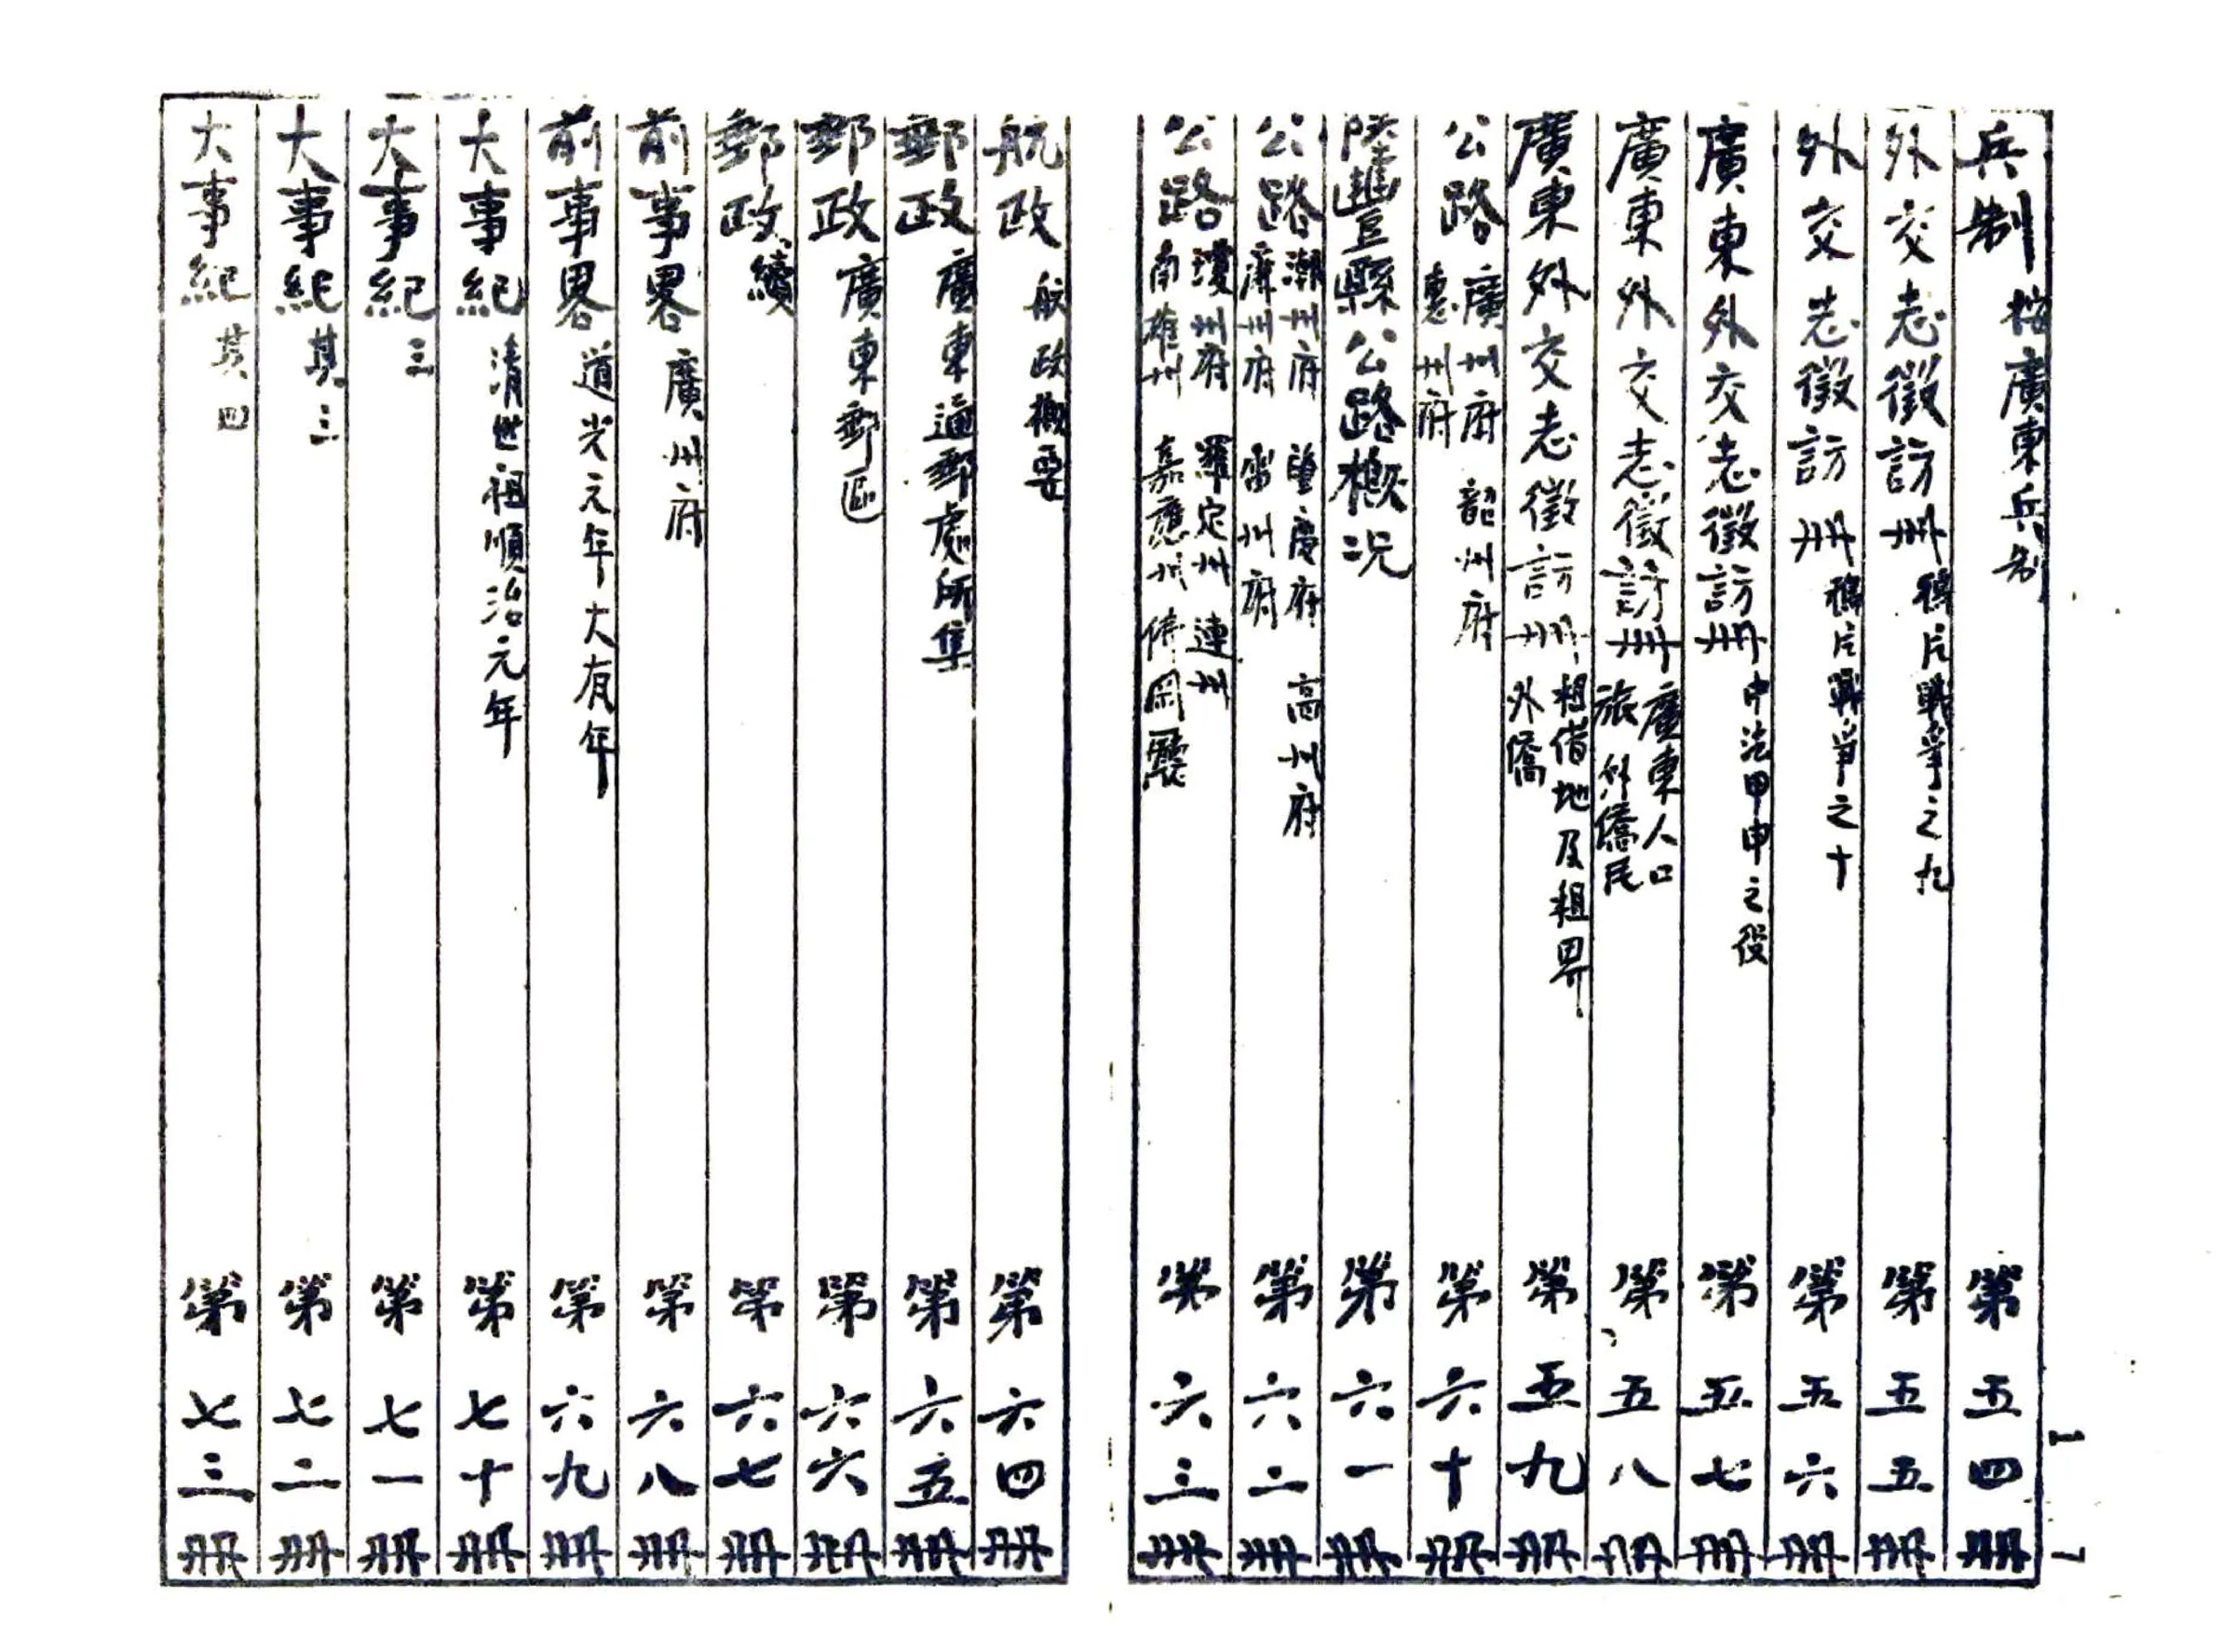 兵制 按廣東兵制 第五四册
外交志徵訪册 鴉片戰爭之九 第五五册
外交志徵訪册 鴉片戰爭之十 第五六册
廣東外交志徵訪册 中法甲申之役 第五七册
廣東外交志徵訪册 廣東人口旅外僑民 第五八册
廣東外交志徵訪册 租借地及租界外僑 第五九册
公路 廣州府 韶州府 惠州府 第六十册
陸豐縣公路概況 第六一册
公路 潮州府 肇慶府 高州府 廉州府 雷州府 第六二册
公路 瓊州府 羅定州 連州 南雄州 嘉應州 佛岡廳 第六三册
航政 航政概要 第六四册
郵政 廣東通郵處所集 第六五册
郵政 廣東郵區 第六六册
郵政 續 第六七册
前事畧 廣州府 第六八册
前事畧 道光元年大有年 第六九册
大事紀 清世祖順治元年 第七十册
大事紀 三 第七一册
大事紀 其三 第七二册
大事紀 其四 第七三册